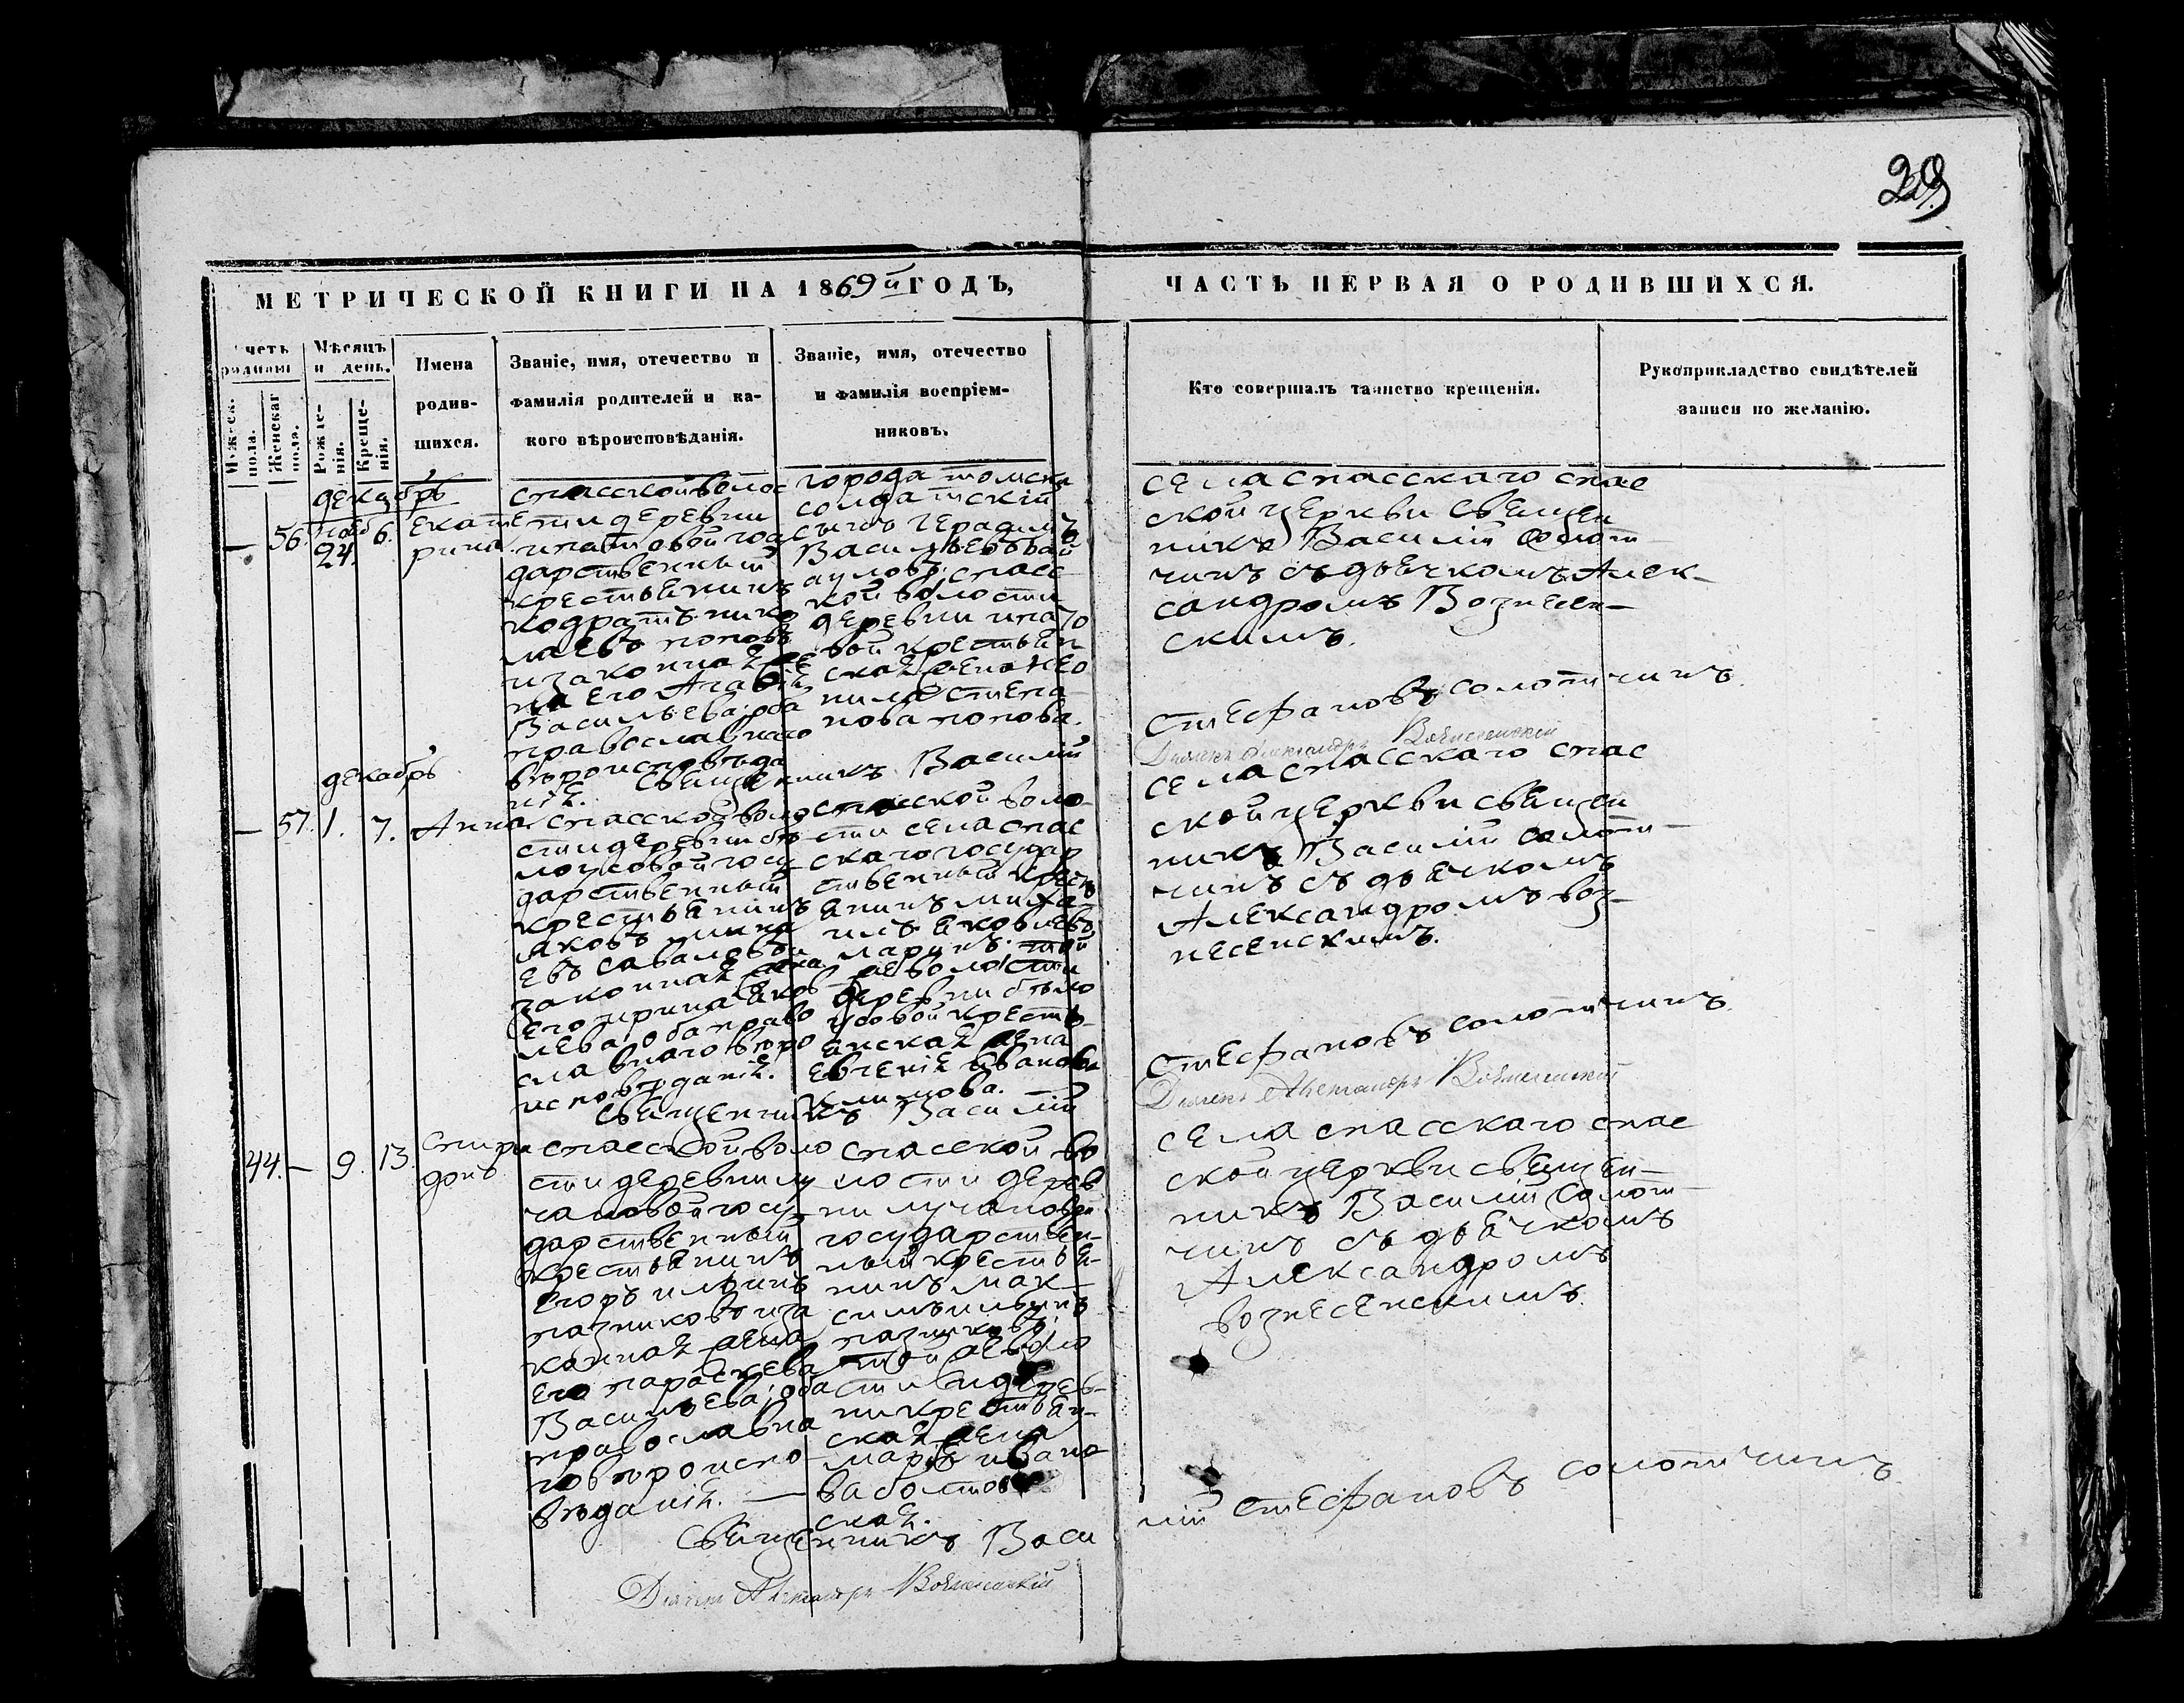 29
МЕТРИЧЕСКОЙ КНИГИ НА 1869й ГОДЪ,
ЧАСТЬ ПЕРВАЯ О РОДИВШИХСЯ.
Счетъ родивш
Мужеск. пола.
Женскаг пола.
Мѣсяцъ и день.
Рожде-нія.
Креще-нія.
Имена
родив-
шихся.
Званіе, имя, отечество и
фамилія родителей и ка-
кого вѣроисповѣданія.
Званіе, имя, отечество
и фамилія воспріем-
никовъ.
Кто совершалъ таинство крещенія.
Рукоприкладство свидѣтелей
записи по желанію.
декабрь
— 56. Нояб 24. 6.
Екате
рина
спасской волос
ти деревни
ипатовой госу
дарственный
крестьянинъ
кодратъ нико
лаевъ поповъ
и законная же
на его Агафія
Васильева; оба
православнаго
вѣроисповѣда
нія.
города томска
солдатскій
сынъ Герасимъ
Васильевъ
спасс
кой волости
деревни ипато
вой крестьян
ская жена Нео
нила Степа
нова попова.
села спасскаго спас
ской церкви священ
никъ Василій Солот
чинъ съ дьячкомъ Алек-
сандромъ Вознесен-
скимъ.
Священникъ Василій
Стефановъ солотчинъ.
Дьячекъ Александръ Вознесенскій
декабрь
— 57. 1. 7. Анна
спасской воло
сти деревни бѣ
лоусовой госу
дарственный
крестьянинъ
яковъ
евъ
законная жена
его ирина яков
лева; оба право
славнаго вѣро
исповѣданія.
спасской воло-
сти села спас
скаго государ
ственный крест
янинъ миха-
илъ яковлевъ
ларинъ. той
же волости
деревни бѣло
усовой кресть-
янская жена
Евгенія иванова
климова.
села спасскаго спас
ской церкви священ
никъ Василій солот-
чинъ съ дьячкомъ
Александромъ воз-
несенскимъ.
Священникъ Василій
Стефановъ солотчинъ.
Дьячекъ Александръ Вознесенскій
44. — 9. 13.
Спири
донъ
спасской воло
сти деревни лу
чановой госу-
дарственный
крестьянинъ
Егоръ ильинъ
пазниковъ и за
конная жена
его параскева
Васильева; оба
православна
го вѣроиспо-
вѣданія.
спасской во
лости дерев
ни лучановой
государствен-
ный крестья-
нинъ мак-
симъ ильинъ
пазниковъ;
той же воло
сти и дерев-
ни крестьян-
ская жена
марія ивано
ва болтов
ская.
села спасскаго спас
ской церкви священ-
никъ Василій Солот-
чинъ съ дьячкомъ
Александромъ
вознесенскимъ.
Священникъ Васи
лій Стефановъ солотчинъ.
Дьячекъ Александръ Вознесенскій